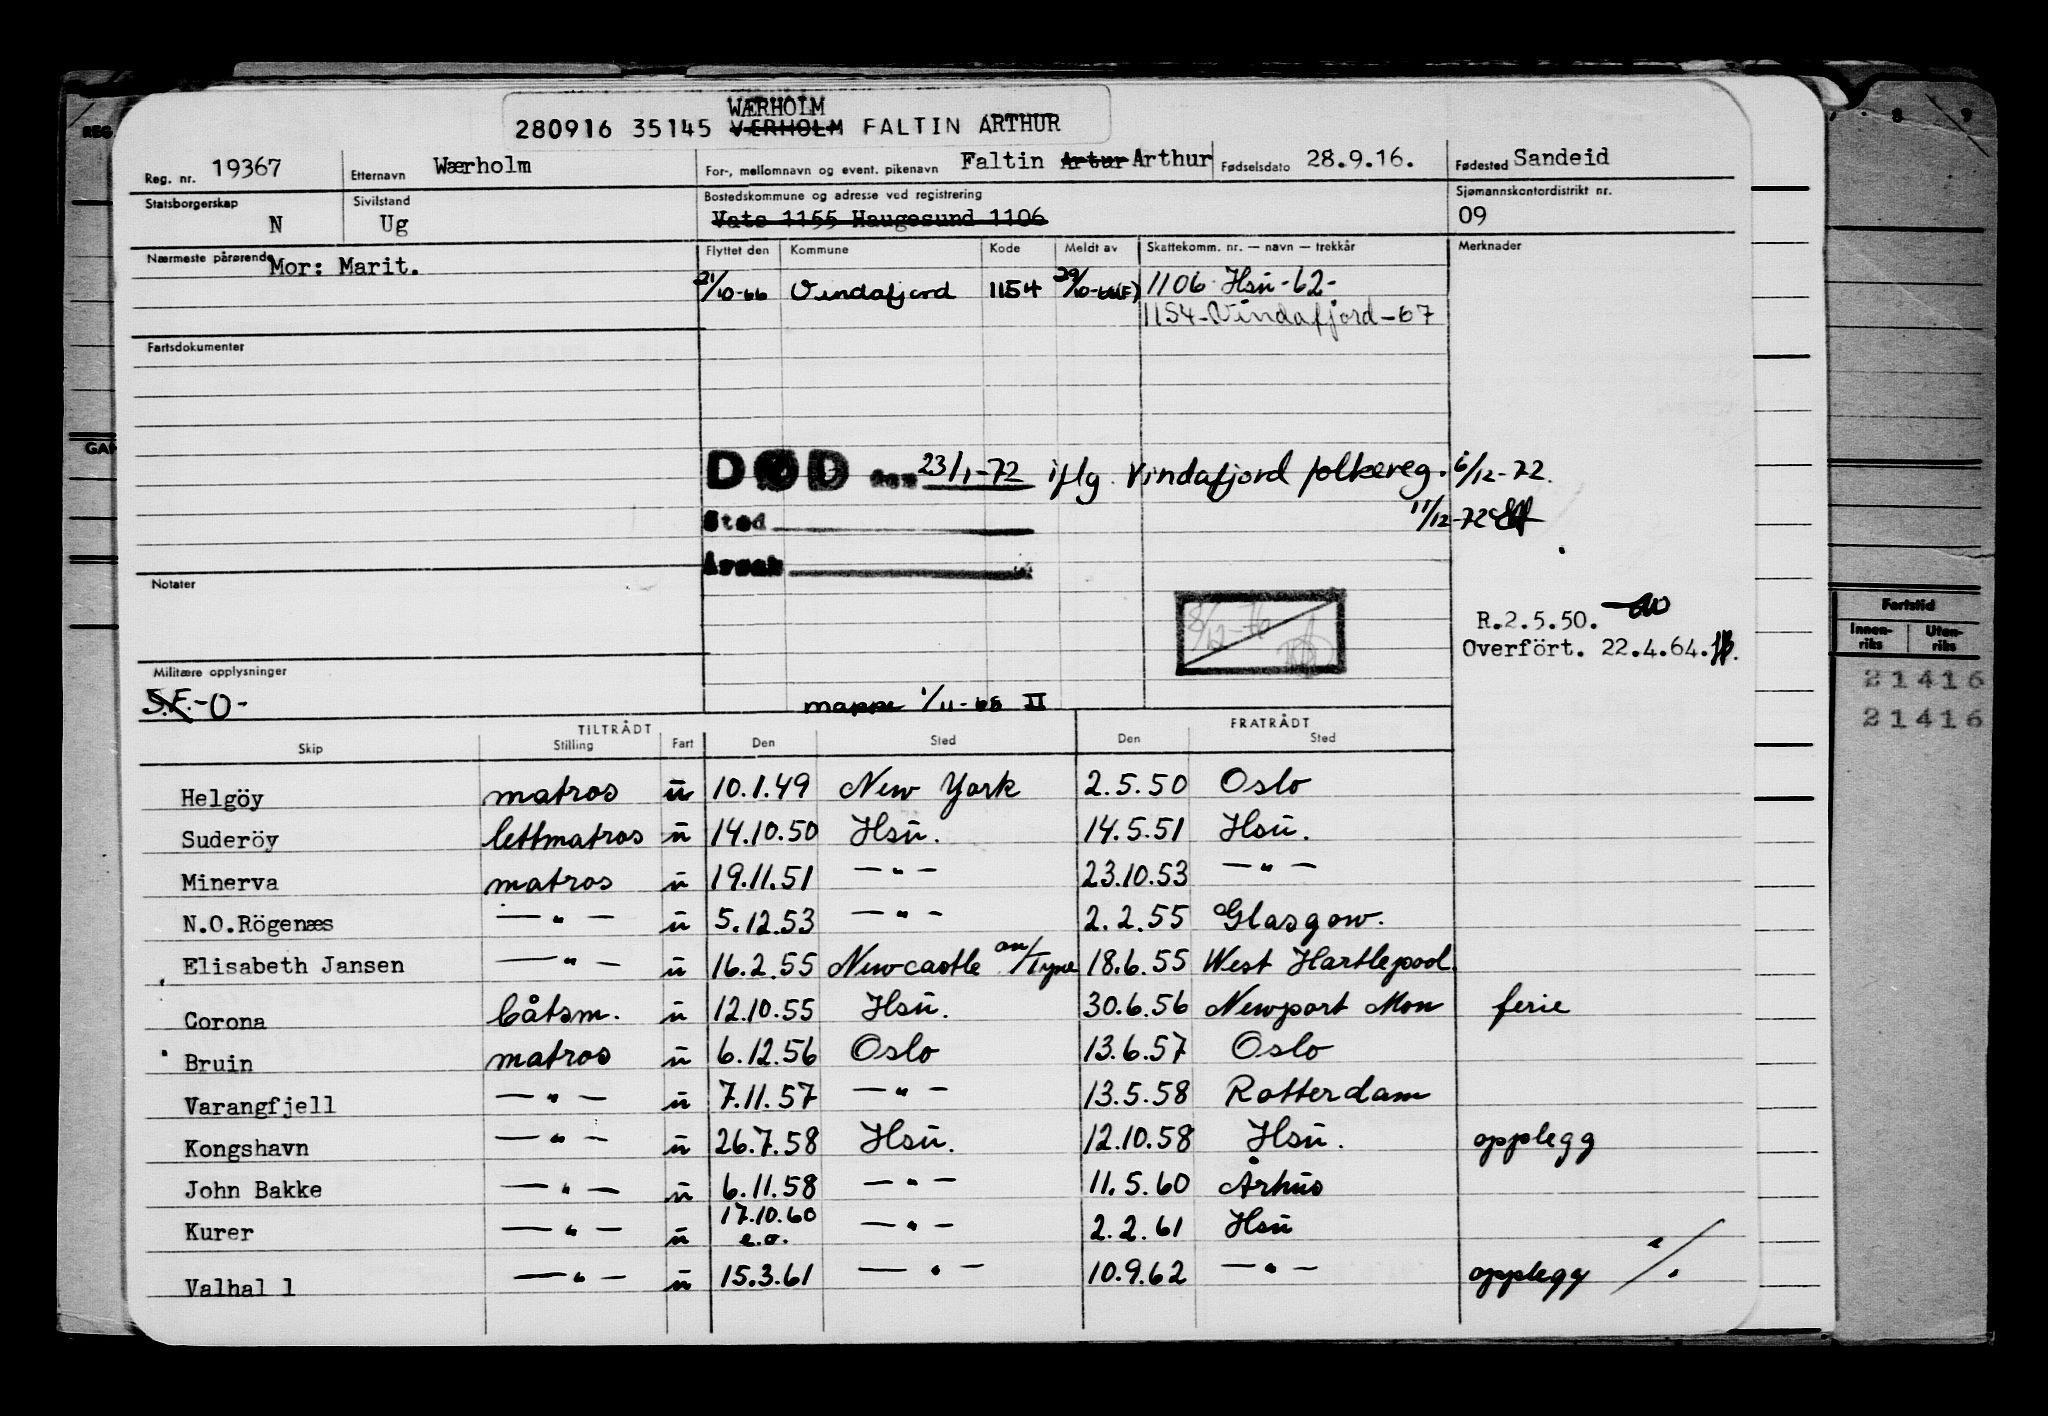 WÆRHOLM
280916 35145 VÆRHOLM FALTIN ARTHUR
Reg. nr. 19367 Etternavn Wærholm For-, mellomnavn og event. pikenavn Faltin Artur Arthur Fødselsdato 28.9.16. Fødested Sandeid
Statsborgerskap N Sivilstand Ug Bostedskommune og adresse ved registrering Vats 1155 Haugesund 1106 Sjømannskontordistrikt nr. 09
Nærmeste pårørende Mor: Marit. Flyttet den Kommune Kode Meldt av Skattekomm. nr. — navn — trekkår Merknader
21/10-66 Vindafjord 1154 29/10-66(F) 1106 Hsu -62-
1154-Vindafjord-67
Fartsdokumenter
DØD den 23/1-72 iflg Vindafjord folkereg. 6/12-72.
11/12-72
Sted
Årsak
Notater
8/12-76
R.2.5.50.
Overfört. 22.4.64.
Militære opplysninger
S.F.-O-
mappe 1/11-68 II
TILTRÅDT FRATRÅDT
Skip Stilling Fart Den Sted Den Sted
Helgöy matros ū 10.1.49 New York 2.5.50 Oslo
Suderöy lettmatros ū 14.10.50 Hsū. 14.5.51 Hsū.
Minerva matros ū 19.11.51 —"— 23.10.53 —"—
N.O.Rögenæs —"— ū 5.12.53 —"— 2.2.55 Glasgow.
Elisabeth Jansen —"— ū 16.2.55 Newcastle on/Tyne 18.6.55 West Hartlepool.
Corona båtsm. ū 12.10.55 Hsū. 30.6.56 Newport Mon ferie
Bruin matros ū 6.12.56 Oslo 13.6.57 Oslo
Varangfjell —"— ū 7.11.57 —"— 13.5.58 Rotterdam
Kongshavn —"— ū 26.7.58 Hsū. 12.10.58 Hsū. opplegg
John Bakke —"— ū 6.11.58 —"— 11.5.60 Århus
Kurer —"— ū 17.10.60 e.o. —"— 2.2.61 Hsū
Valhal l —"— ū 15.3.61 —"— 10.9.62 —"— opplegg
REG
GAN
8 9
Fartstid
Innen-riks Uten-riks
21416
21416